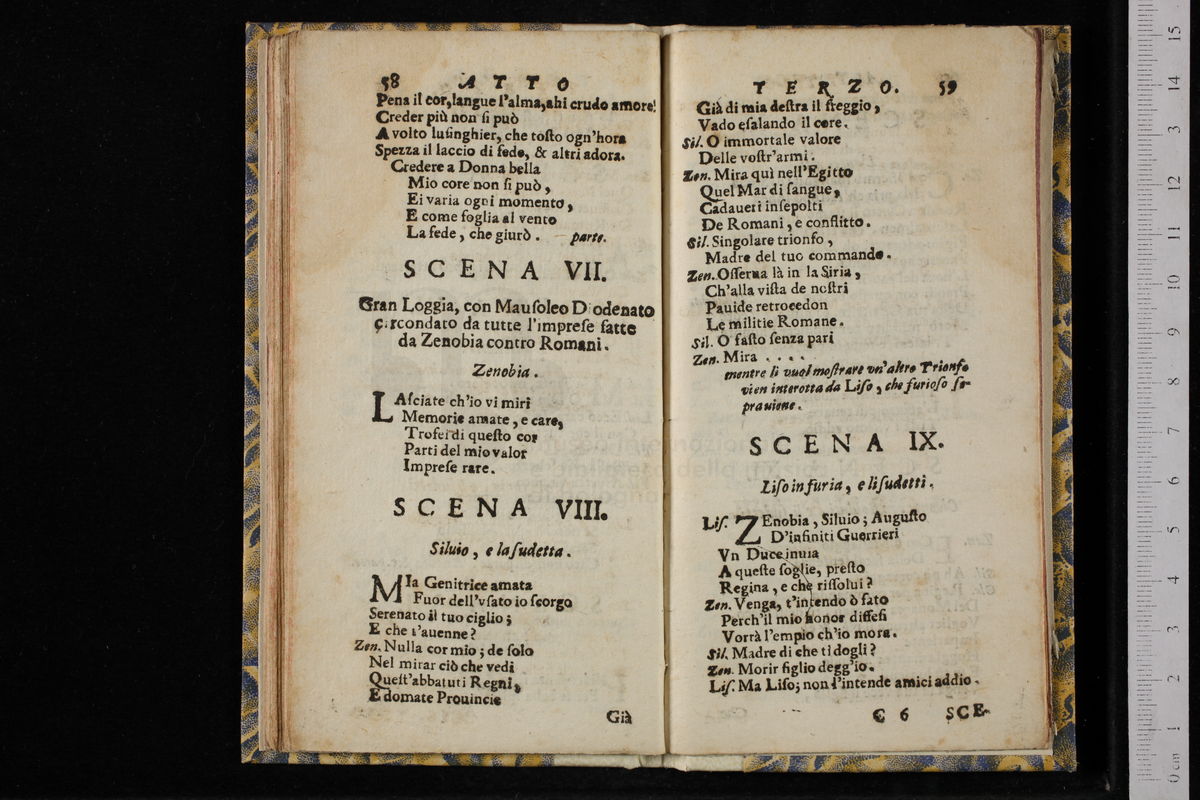 58 ATTO
Pena il cor, langue l'alma, ahi crudo amore!
Creder più non ſi può
A volto luſinghier, che toſto ogn'hora
Spezza il laccio di fede, & altri adora.
Credere a Donna bella
Mio core non ſi può,
Ei varia ogni momento,
E come foglia al vento
La fede, che giurò. parte.
SCENA VII.
Gran Loggia, con Mauſoleo D'odenato
circondato da tutte l'impreſe fatte
da Zenobia contro Romani.
Zenobia.
LAſciate ch'io vi miri
Memorie amate, e care,
Trofei di queſto cor
Parti del mio valor
Impreſe rare.
SCENA VIII.
Siluio, e la ſudetta.
MIa Genitrice amata
Fuor dell'vſato io ſcorgo
Serenato il tuo ciglio;
E che t'auenne?
Zen. Nulla cor mio; de ſolo
Nel mirar ciò che vedi
Queſt'abbatuti Regni,
E domate Prouincie
Già
TERZO. 59
Già di mia deſtra il ſreggio,
Vado eſalando il core.
Sil. O immortale valore
Delle voſtr'armi.
Zen. Mira quì nell'Egitto
Quel Mar di ſangue,
Cadaueri inſepolti
De Romani, e conflitto.
Sil. Singolare trionfo,
Madre del tuo commando.
Zen. Oſſerua là in la Siria,
Ch'alla viſta de noſtri
Pauide retrocedon
Le militie Romane.
Sil. O faſto ſenza pari
Zen. Mira . . . .
mentre li vuol moſtrare vn'altro Trionfo
vien interotta da Liſo, che furioſo ſo-
prauiene.
SCENA IX.
Liſo in furia, e li ſudetti.
Liſ. ZEnobia, Siluio; Auguſto
D'infiniti Guerrieri
Vn Duce inuia
A queſte ſoglie, preſto
Regina, e chè riſſolui?
Zen. Venga, t'intendo ò fato
Perch'il mio honor diffeſi
Vorrà l'empio ch'io mora.
Sil. Madre di che ti dogli?
Zen. Morir figlio degg'io.
Liſ. Ma Liſo; non l'intende amici addio.
C 6 SCE-
0 cm 1 2 3 4 5 6 7 8 9 10 11 12 13 14 15